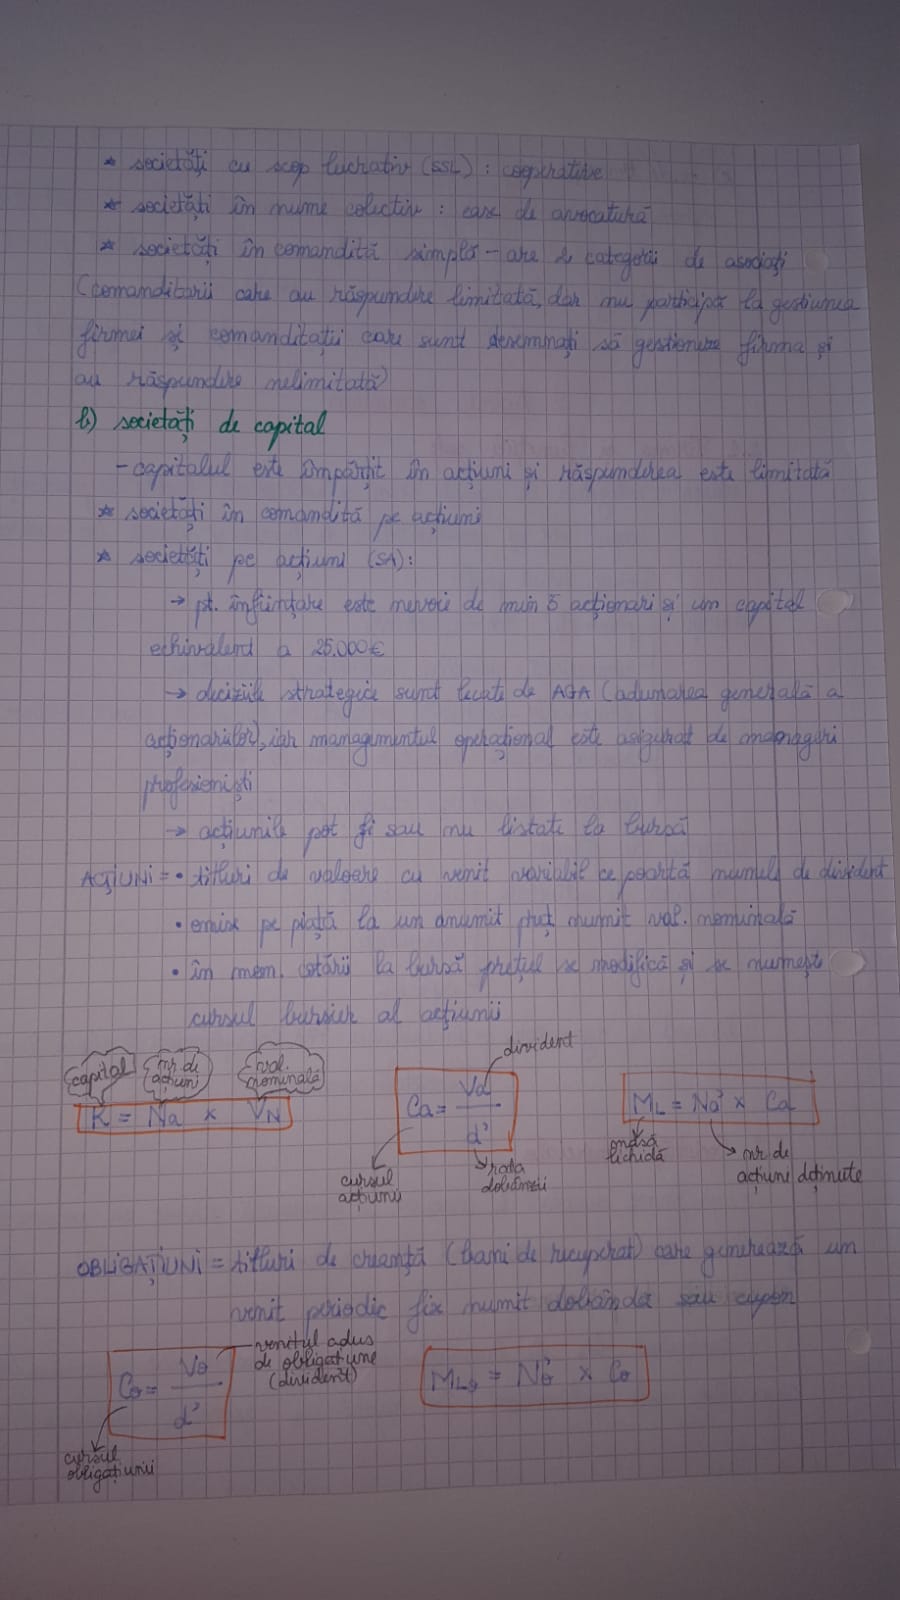 * societăți cu scop lucrativ (SSL): cooperative
* societăți în nume colectiv: case de avocatură
* societăți în comandită simplă - are 2 categorii de asociați
(comanditarii care au răspundere limitată, dar nu participă la gestiunea
firmei și comanditați care sunt desemnați să gestioneze firma și
au răspundere nelimitată)
b) societăți de capital
- capitalul este împărțit în acțiuni și răspunderea este limitată
* societăți în comandită pe acțiuni
* societăți pe acțiuni (SA):
→ pt. înființare este nevoie de min 5 acționari și un capital
echivalent a 25.000€
→ deciziile strategice sunt luate de AGA (adunarea generală a
acționarilor), iar managmentul operațional este asigurat de manageri
profesioniști
→ acțiunile pot fi sau nu listate la bursă
ACȚIUNI = • titluri de valoare cu venit variabil ce poartă numele de divident
• emise pe piață la un anumit preț numit val. nominală
• în mom. cotării la bursă prețul se modifică și se numește
cursul bursier al acțiunii
capital
nr de acțiuni
val. nominală
K = Na x VN
divident
Ca = Vd / d'
cursul acțiunii
rata dobânzii
ML = Na' x Ca
masă lichidă
nr. de acțiuni deținute
OBLIGAȚIUNI = titluri de creanță (bani de recuperat) care generează un
venit periodic fix numit dobândă sau cupon
Co = Vo / d'
cursul obligațiunii
venitul adus de obligațiune (divident)
ML = No' x Co